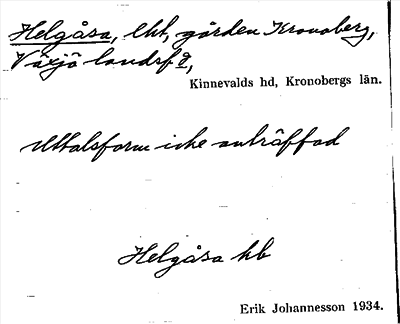 Helgåsa, lht, gården Kronoberg,
Växjö landsf ð,
Kinnevalds hd, Kronobergs län.
Uttalsform icke anträffad
Helgåsa hb
Erik Johannesson 1934.